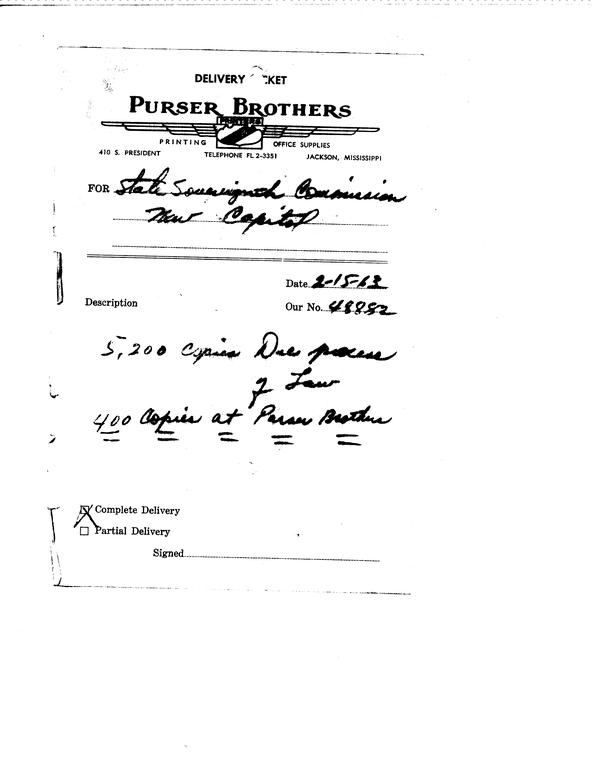 DELIVERY KET
PURSER BROTHERS
PRINTERS
PRINTING OFFICE SUPPLIES
410 S. PRESIDENT TELEPHONE FL 2-3351 JACKSON, MISSISSIPPI
FOR State Sovereignth Commission
New Capitol
Date 2-15-63
Description Our No. 48852
5,200 Copies Due process
of Law
400 Copies at Purser Brothers
Complete Delivery
Partial Delivery
Signed